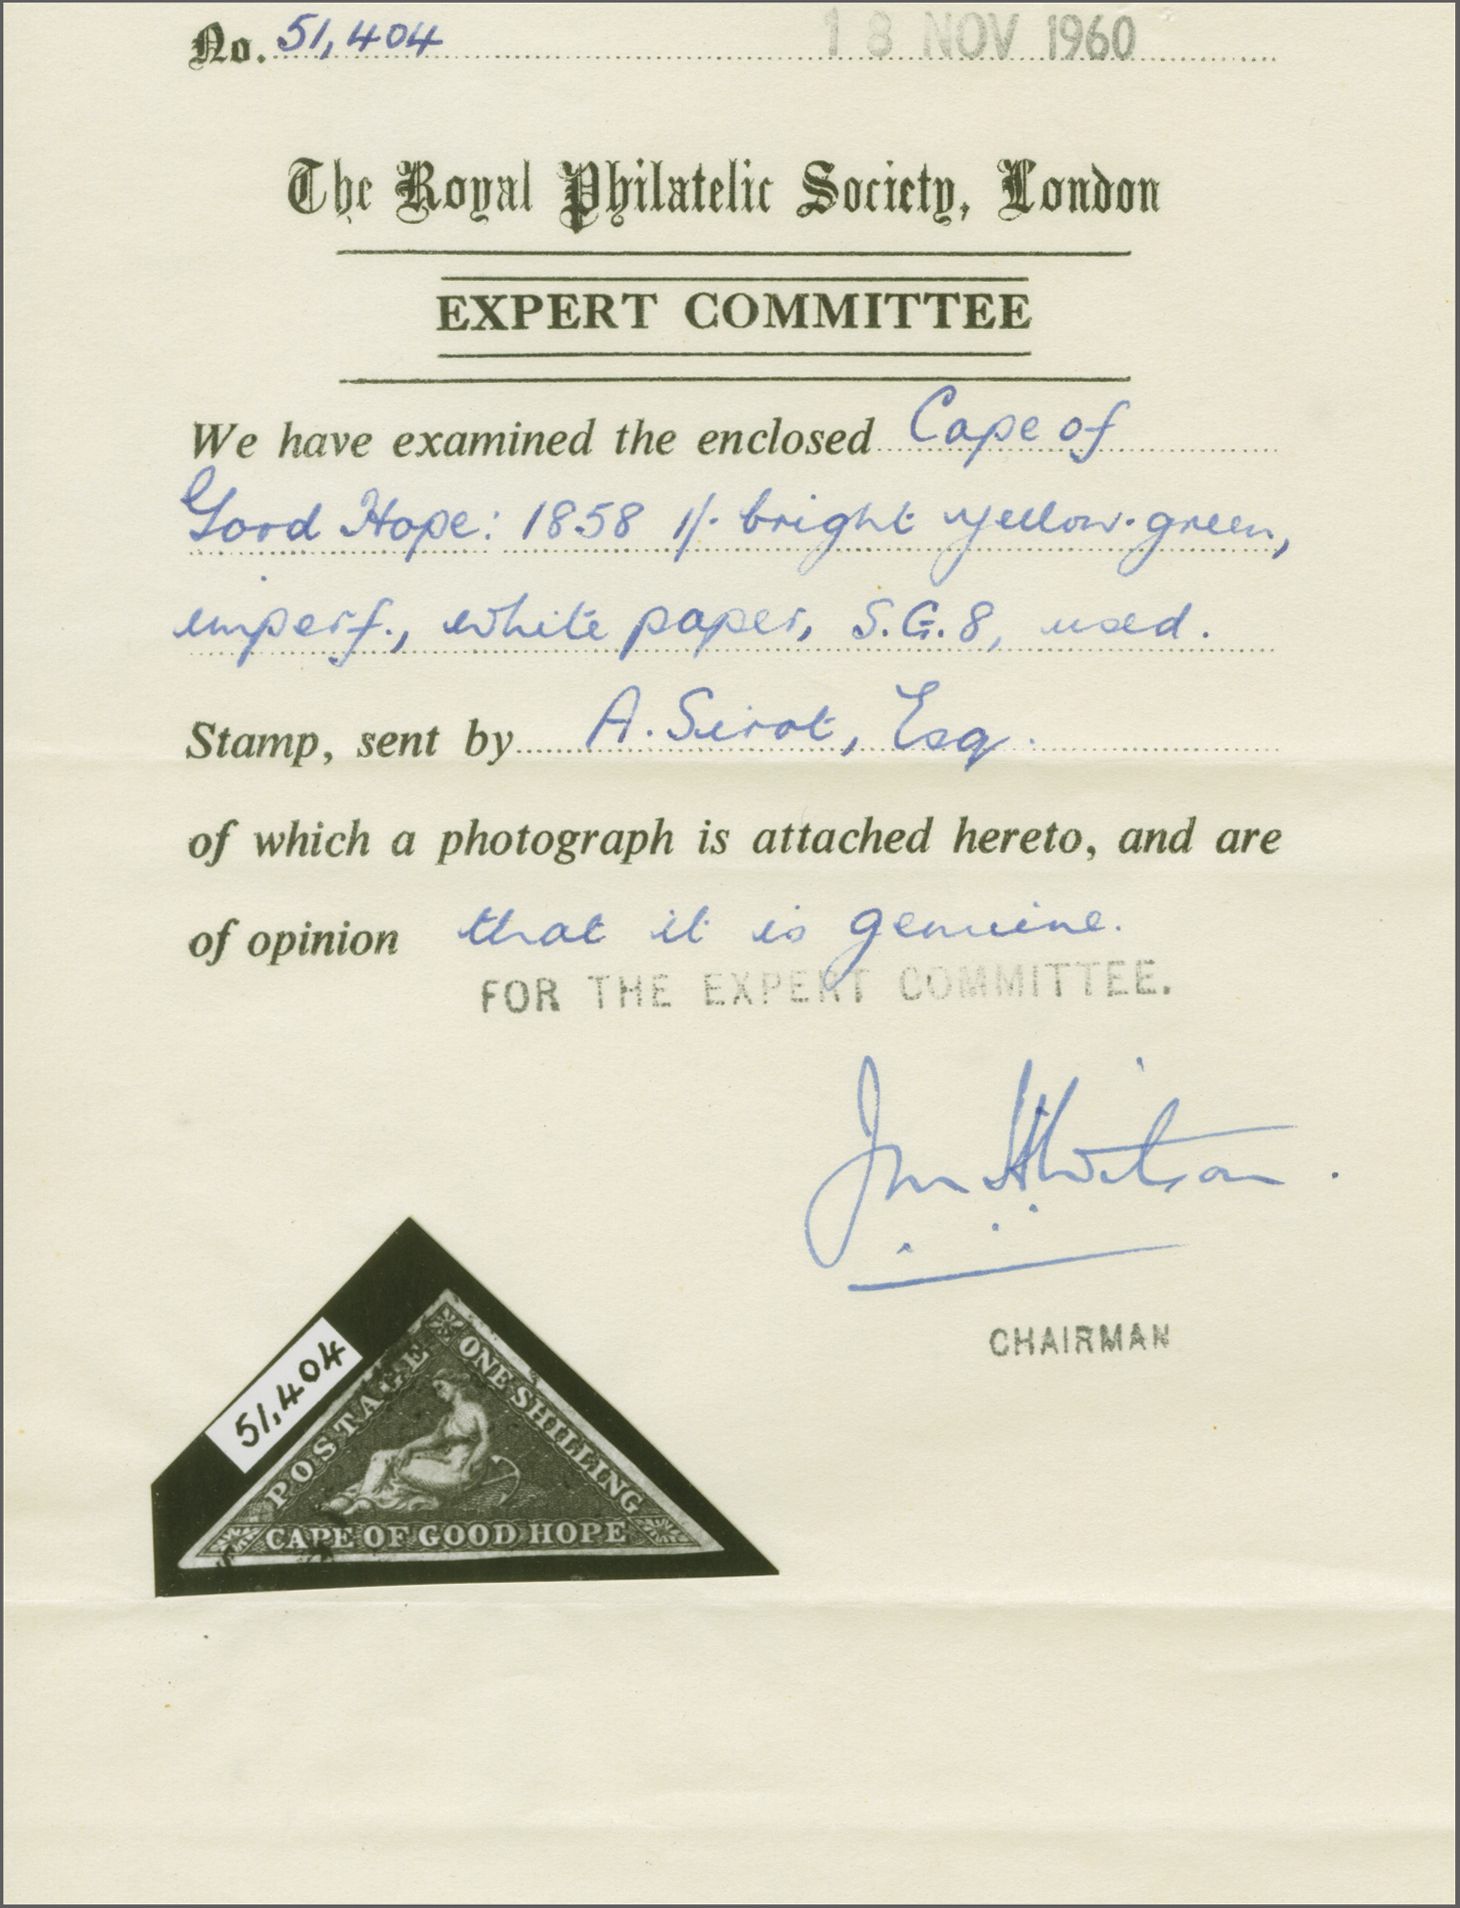 No. 51,404 18 NOV 1960
The Royal Philatelic Society, London
EXPERT COMMITTEE
We have examined the enclosed Cape of
Good Hope: 1858 1/- bright yellow-green,
imperf., white paper, S.G.8, used.
Stamp, sent by A. Sirot, Esq.
of which a photograph is attached hereto, and are
of opinion that it is genuine.
FOR THE EXPERT COMMITTEE.
CHAIRMAN
51,404
POSTAGE
ONE SHILLING
CAPE OF GOOD HOPE